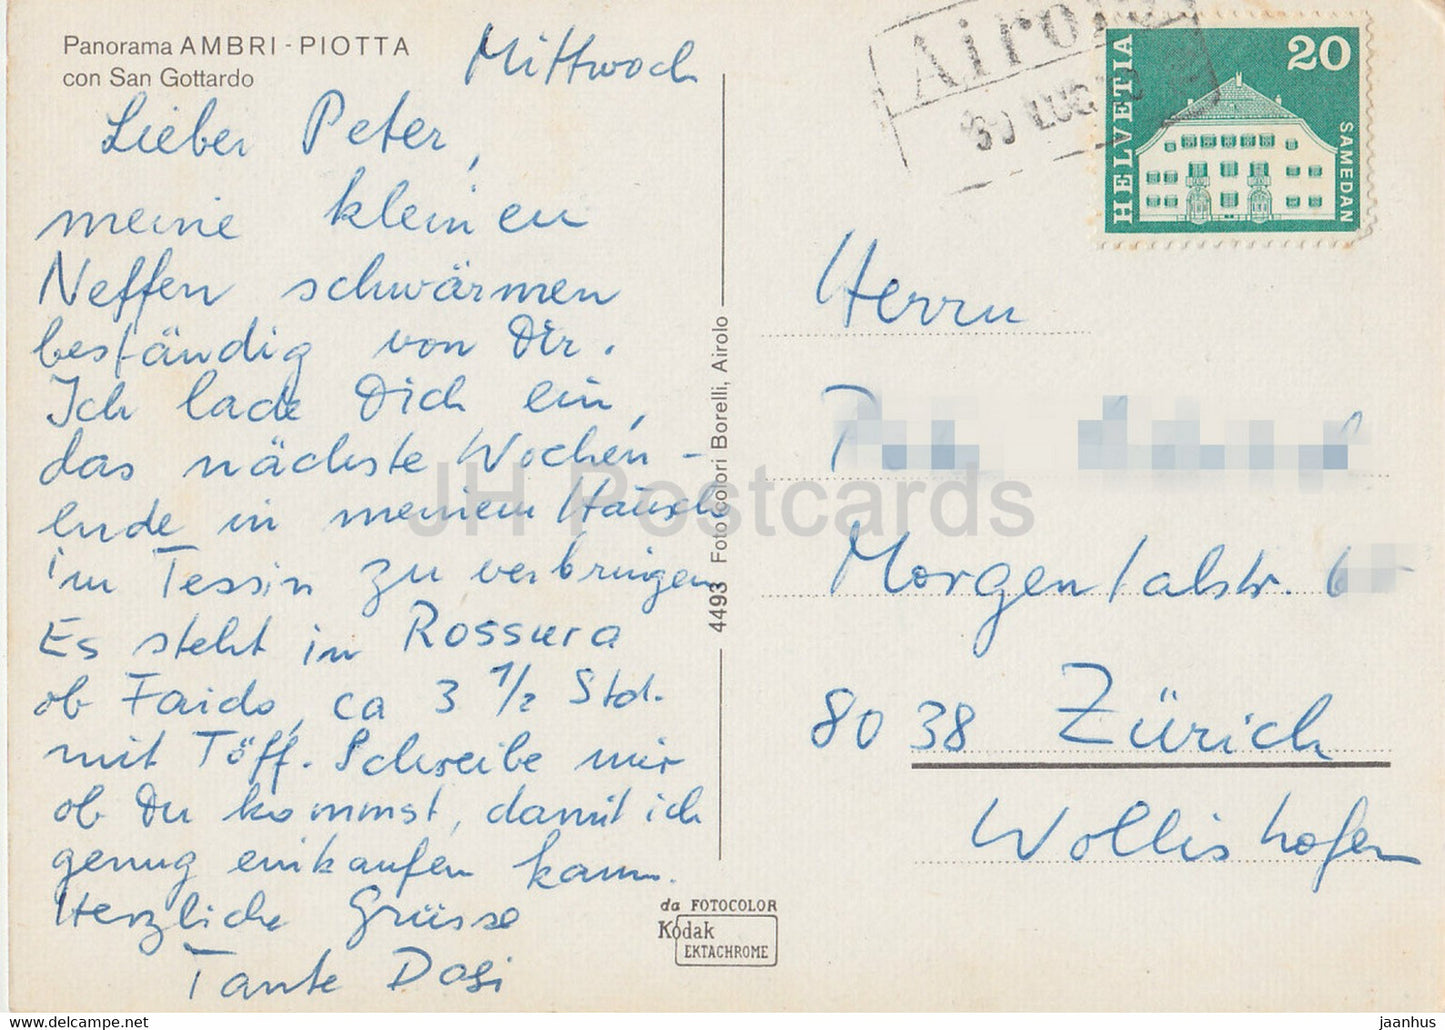 Panorama AMBRI-PIOTTA
con San Gottardo
Mittwoch
Lieber Peter,
meine kleinen
Neffen schwärmen
beständig von Dir.
Ich lade Dich ein,
das nächste Wochen-
ende in meinem Häusch
im Tessin zu verbringen
Es steht in Rossura
ob Faido, ca 3 1/2 Std.
mit Töff. Schreibe mir
ob Du kommst, damit ich
genug einkaufen kann.
Herzliche Grüsse
Tante Dosi
4493 Foto colori Borelli, Airolo
da FOTOCOLOR
Kodak
EKTACHROME
Airolo
30 LUG
HELVETIA
20
SAMEDAN
Herrn
Morgentalstr.
8038 Zürich
Wollishofen
JH Postcards
https://www.hippostcard.com/store/jaanhus
jaanhus